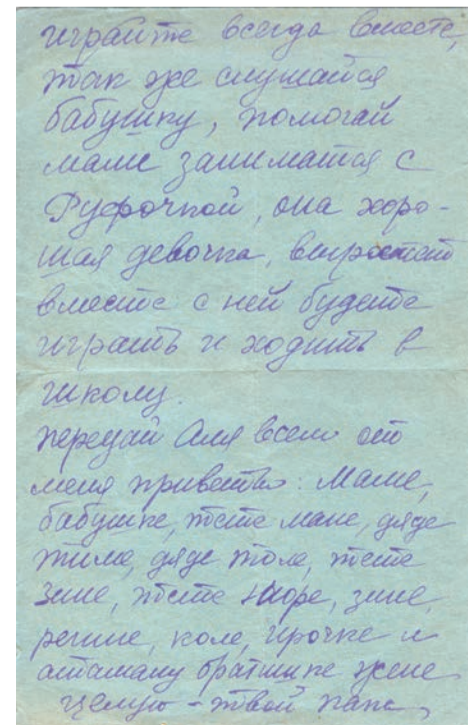 играйте всегда вместе,
так же слушайся
бабушку, помогай
маме заниматся с
Руфочкой, она хоро-
шая девочка, выростит
вместе с ней будете
играть и ходить в
школу.
передай Аля всем от
меня приветы: Маме,
бабушке, тёте мане, дяде
тиме, дяде толе, тёте
зине, тёте Нюре, зине,
регине, коле, ирочке и
атаману братишке жене
целую - твой папа